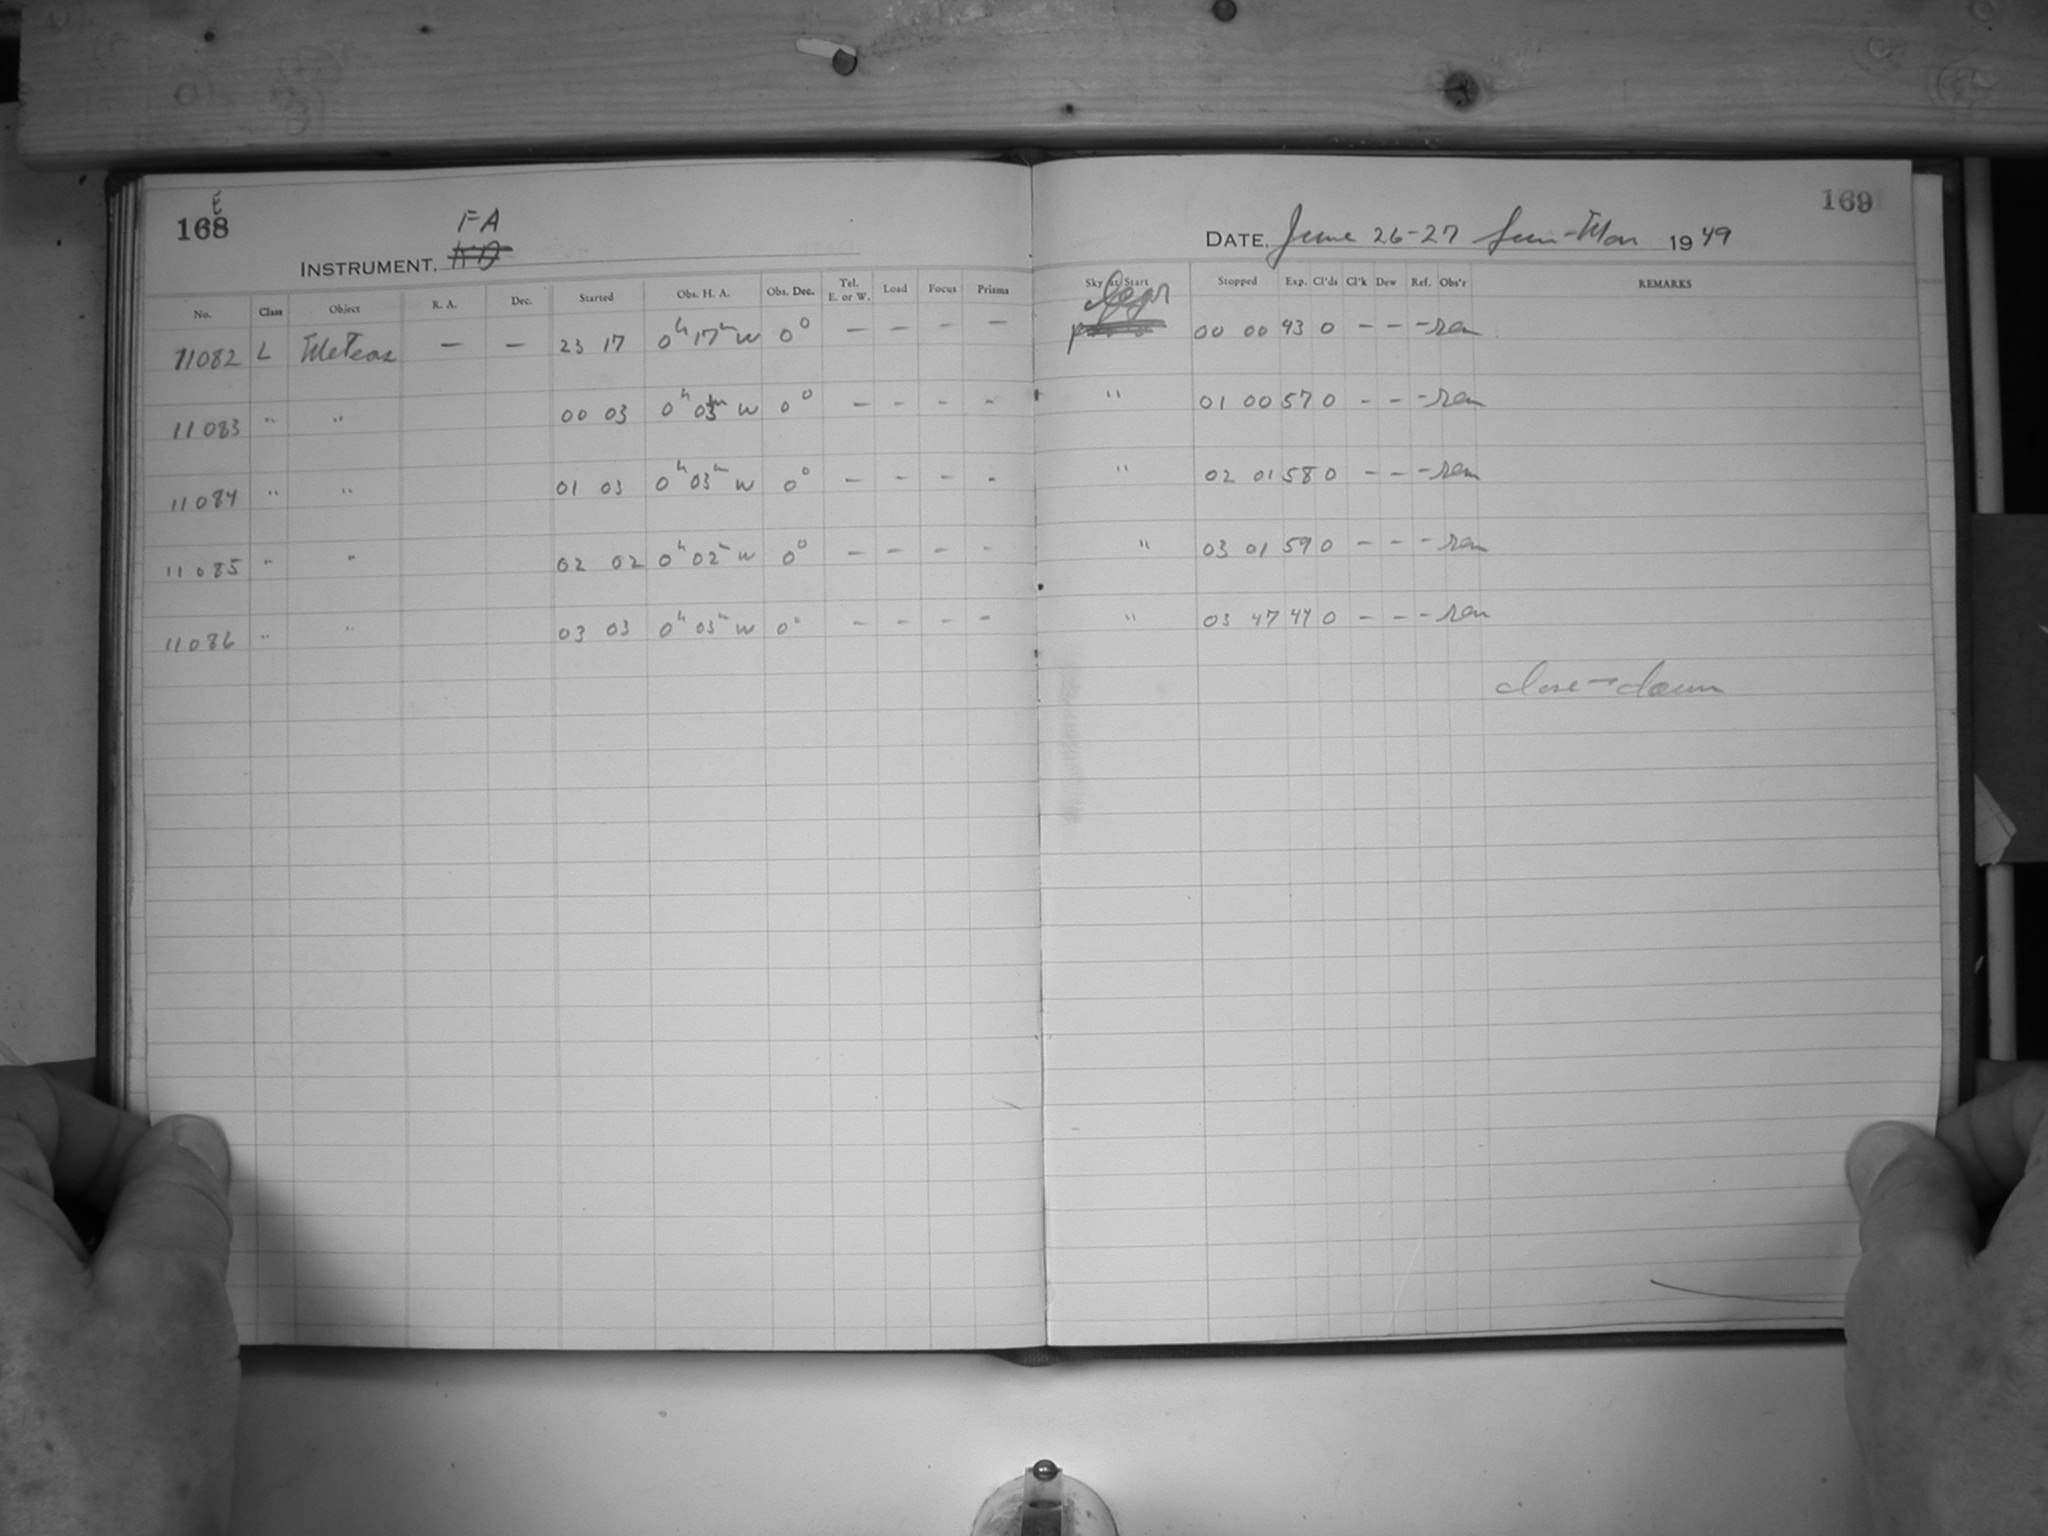 168 t
FA
INSTRUMENT,
No. Class Object R. A. Dec. Started Obs. H. A. Obs. Dec. Tel. E. or W. Load Focus Prisms
11082 L Meteor — — 23 17 0h 17m W 0° — — — —
11083 " " 00 03 0h 03m W 0° — - - -
11084 " " 01 03 0h 03m W 0° — - - -
11085 " " 02 02 0h 02m W 0° — — — -
11086 " " 03 03 0h 03m W 0° — - - -
169
DATE, June 26-27 Sun-Mon 1949
Sky at Start Stopped Exp. Cl'ds Cl'k Dew Ref. Obs'r REMARKS
clear 00 00 43 0 - - - rem
" 01 00 57 0 - - - rem
" 02 01 58 0 - - - rem
" 03 01 59 0 - - - rem
" 03 47 44 0 - - - rem
close-down